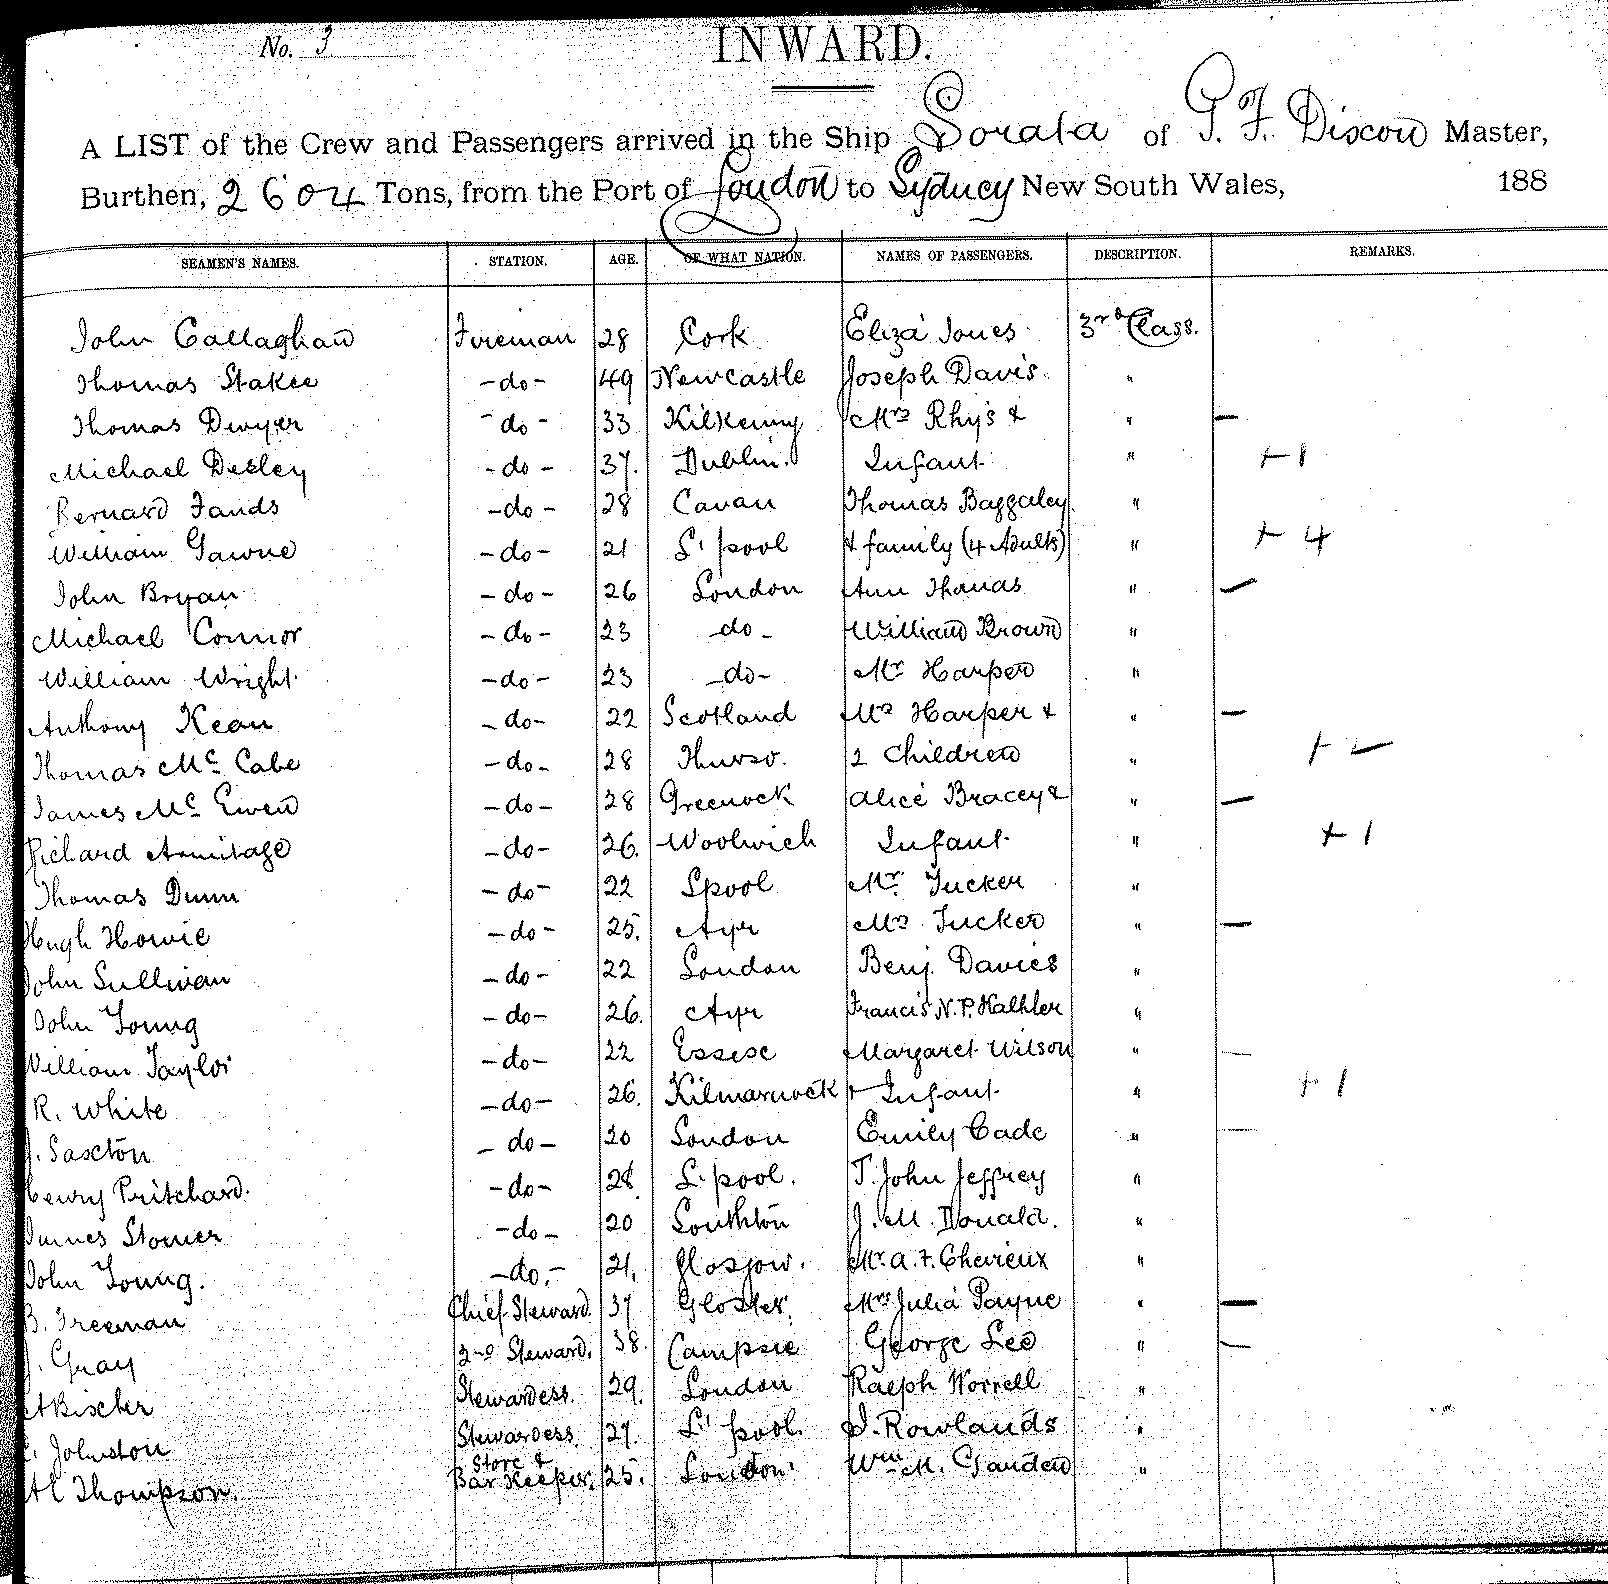 No. 3
INWARD.
A LIST of the Crew and Passengers arrived in the Ship Sorata of G. F. Dixon Master,
Burthen, 2604 Tons, from the Port of London to Sydney New South Wales, 188
SEAMEN'S NAMES. STATION. AGE. OF WHAT NATION. NAMES OF PASSENGERS. DESCRIPTION. REMARKS.
John Callaghan Fireman 28 Cork Eliza Jones 3rd Class.
Thomas Stakee -do- 49 Newcastle Joseph Davis "
Thomas Dwyer -do- 33 Kilkenny Mrs Rhys & " —
Michael -do- 37. Dublin. Infant " +1
Bernard Fands -do- 28 Cavan Thomas Baggaley "
William Gawne -do- 21 L'pool & family (4 Adults) " + 4
John Bryan -do- 26 London Ann Thomas " —
Michael Connor -do- 23 -do- William Brown "
William Wright -do- 23 -do- Mr Harper "
Anthony Kean -do- 22 Scotland Mrs Harper & " —
Thomas Mc Cabe -do- 28 Thurso. 2 Children "
James Mc Ewen -do- 28 Greenock Alice Bracey & " —
Richard Armitage -do- 26. Woolwich Infant " +1
Thomas Dunn -do- 22 Lpool Mr. Tucker "
Hugh Howie -do- 25. Ayr Mrs Tucker " —
John Sullivan -do- 22 London Benj. Davies "
John Young -do- 26. Ayr Francis N. P. "
William Taylor -do- 22 Essex Margaret Wilson " —
R. White -do- 26. Kilmarnock + Infant " +1
J. Saxton -do- 20 London Emily Cade " —
Henry Pritchard. -do- 28 L.pool. T. John Jeffrey "
James Stomer -do- 20 Southton J. M. Donald. "
John Young. -do.- 21. Glasgow. Mr. A. F. Chevieux "
B. Freeman Chief Steward. 37 Gloster. Mrs Julia Payne " —
J. Gray 2nd Steward. 38. Campsie George Lee " —
Stewardess. 29. London Ralph Worrell "
Johnston Stewardess. 27. L'pool. Rowlands "
Thompson. Store & Bar Keeper. 25. London. Wm M. "